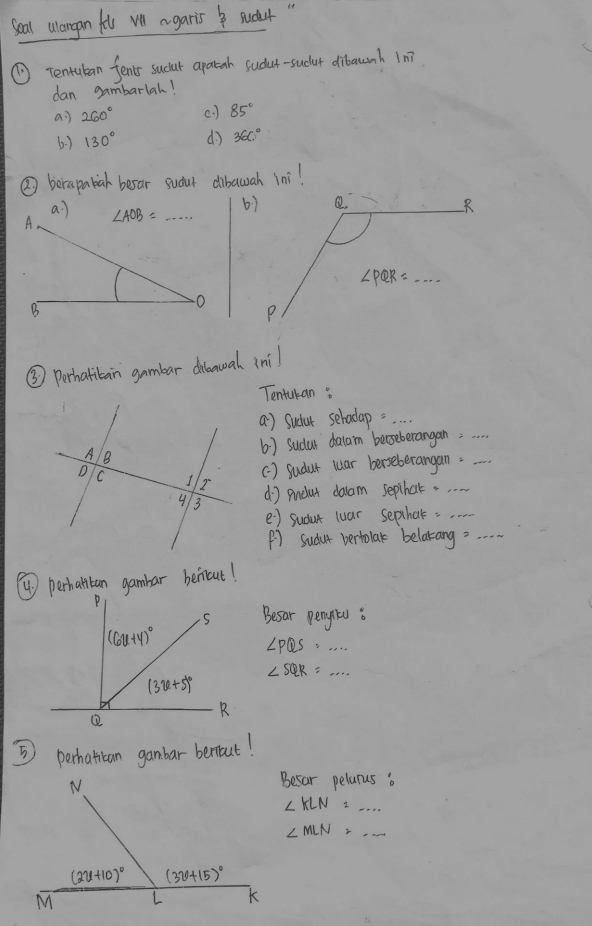 Soal ulangan kls VII ~garis & sudut"
1. Tentukan jenis sudut apakah sudut-sudut dibawah ini
dan gambarlah!
a.) 260° c.) 85°
b.) 130° d.) 360°
2. berapakah besar sudut dibawah ini!
a.) ∠AOB = ..... b.)
A
B
O
Q
R
P
∠PQR = ....
3. Perhatikan gambar dibawah ini!
Tentukan :
a.) Sudut sehadap = ....
b.) Sudut dalam berseberangan = ....
c.) Sudut luar berseberangan = ....
d.) Sudut dalam sepihak = ....
e.) Sudut luar sepihak = ....
f.) Sudut bertolak belakang = .....
A B
D C
1 2
4 3
4. perhatikan gambar berikut!
P
S
(6x+4)°
(3x+5)°
Q
R
Besar penyiku :
∠PQS = ....
∠SQR = ....
5 perhatikan gambar berikut!
N
(2x+10)° (3x+15)°
M L K
Besar pelurus :
∠KLN = ....
∠MLN = ....